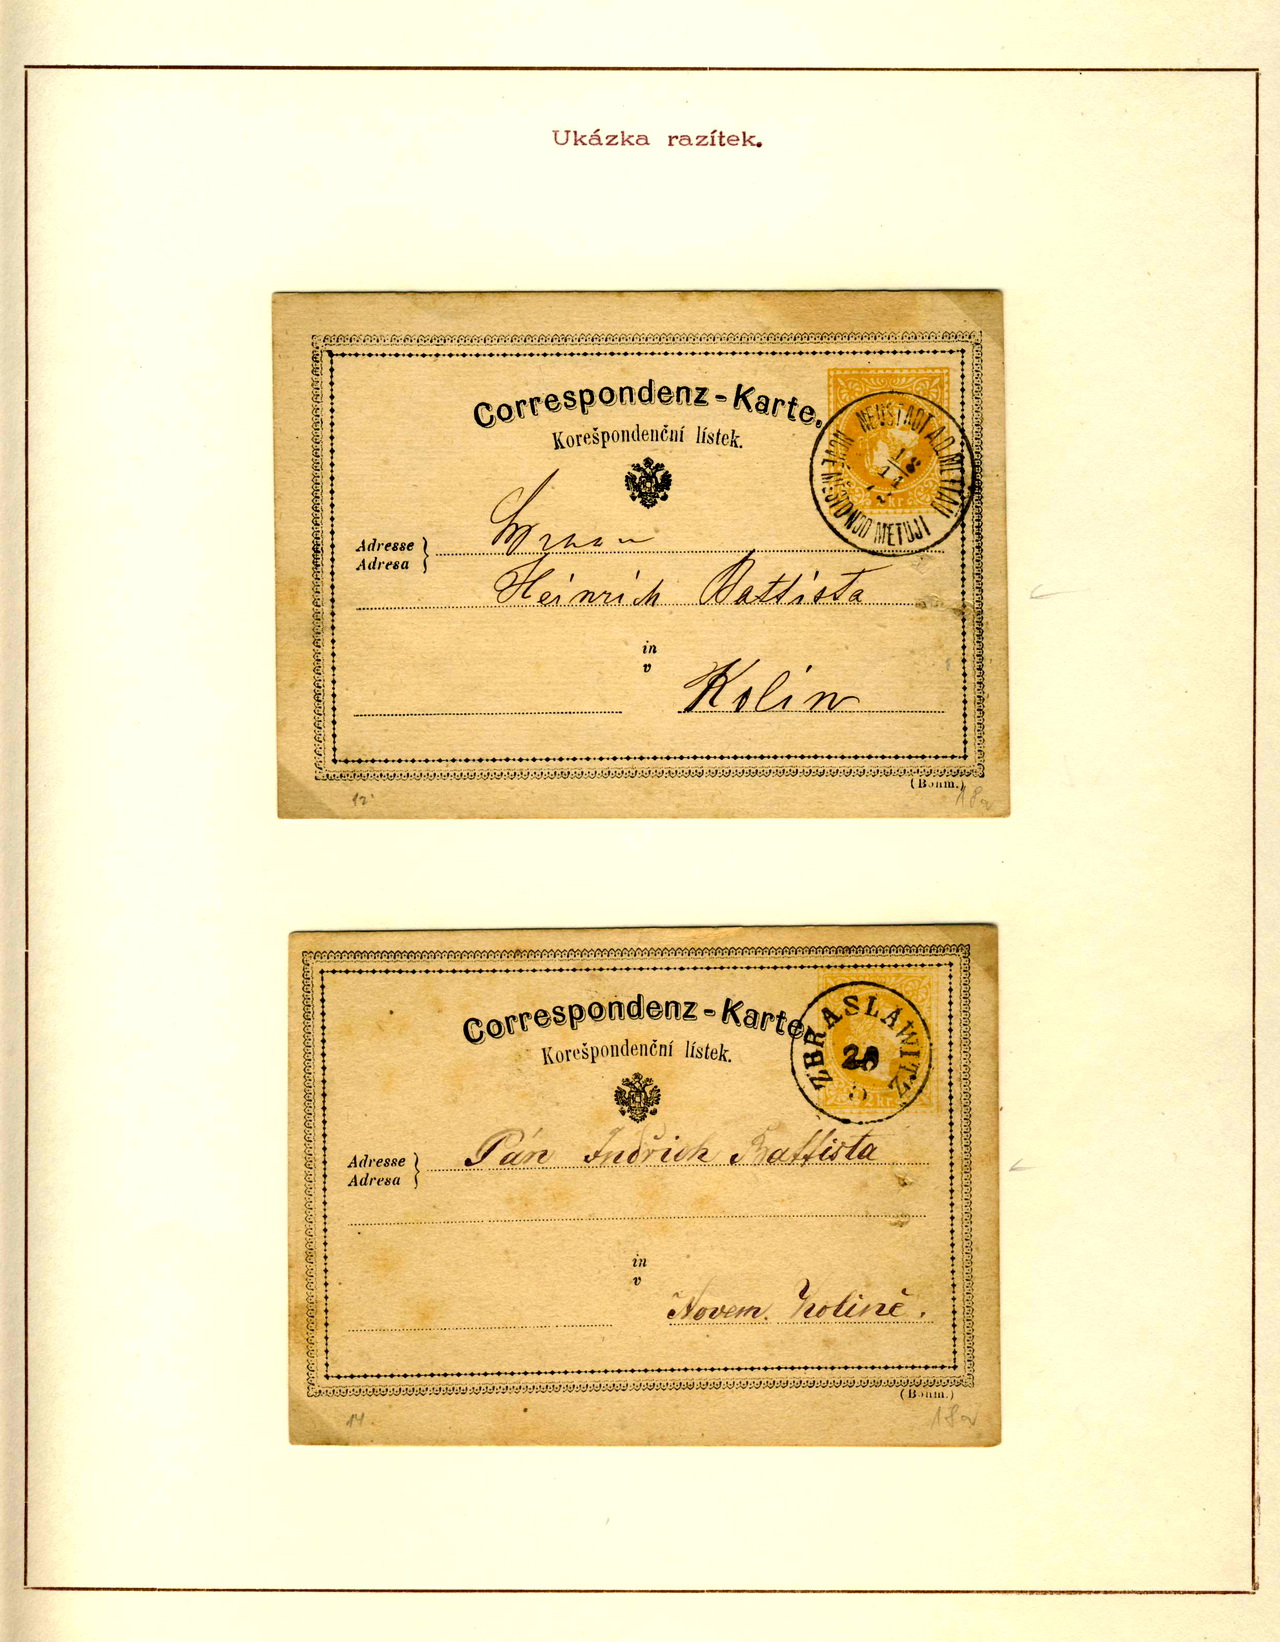 Ukázka razítek.
Correspondenz-Karte.
Korešpondenční lístek.
NEUSTADT A.D. METTAU
NOVÉ MĚSTO NAD METUJI
18
11
kr.
Adresse
Adresa
Heinrich Battista
in
v
Kolin
(Böhm.)
12.
18a
Correspondenz-Karte.
Korešpondenční lístek.
ZBRASLAWITZ
5
2 kr.
Adresse
Adresa
Pán Indřich Battista
in
v
Novem. Kolině.
(Böhm.)
14.
18a